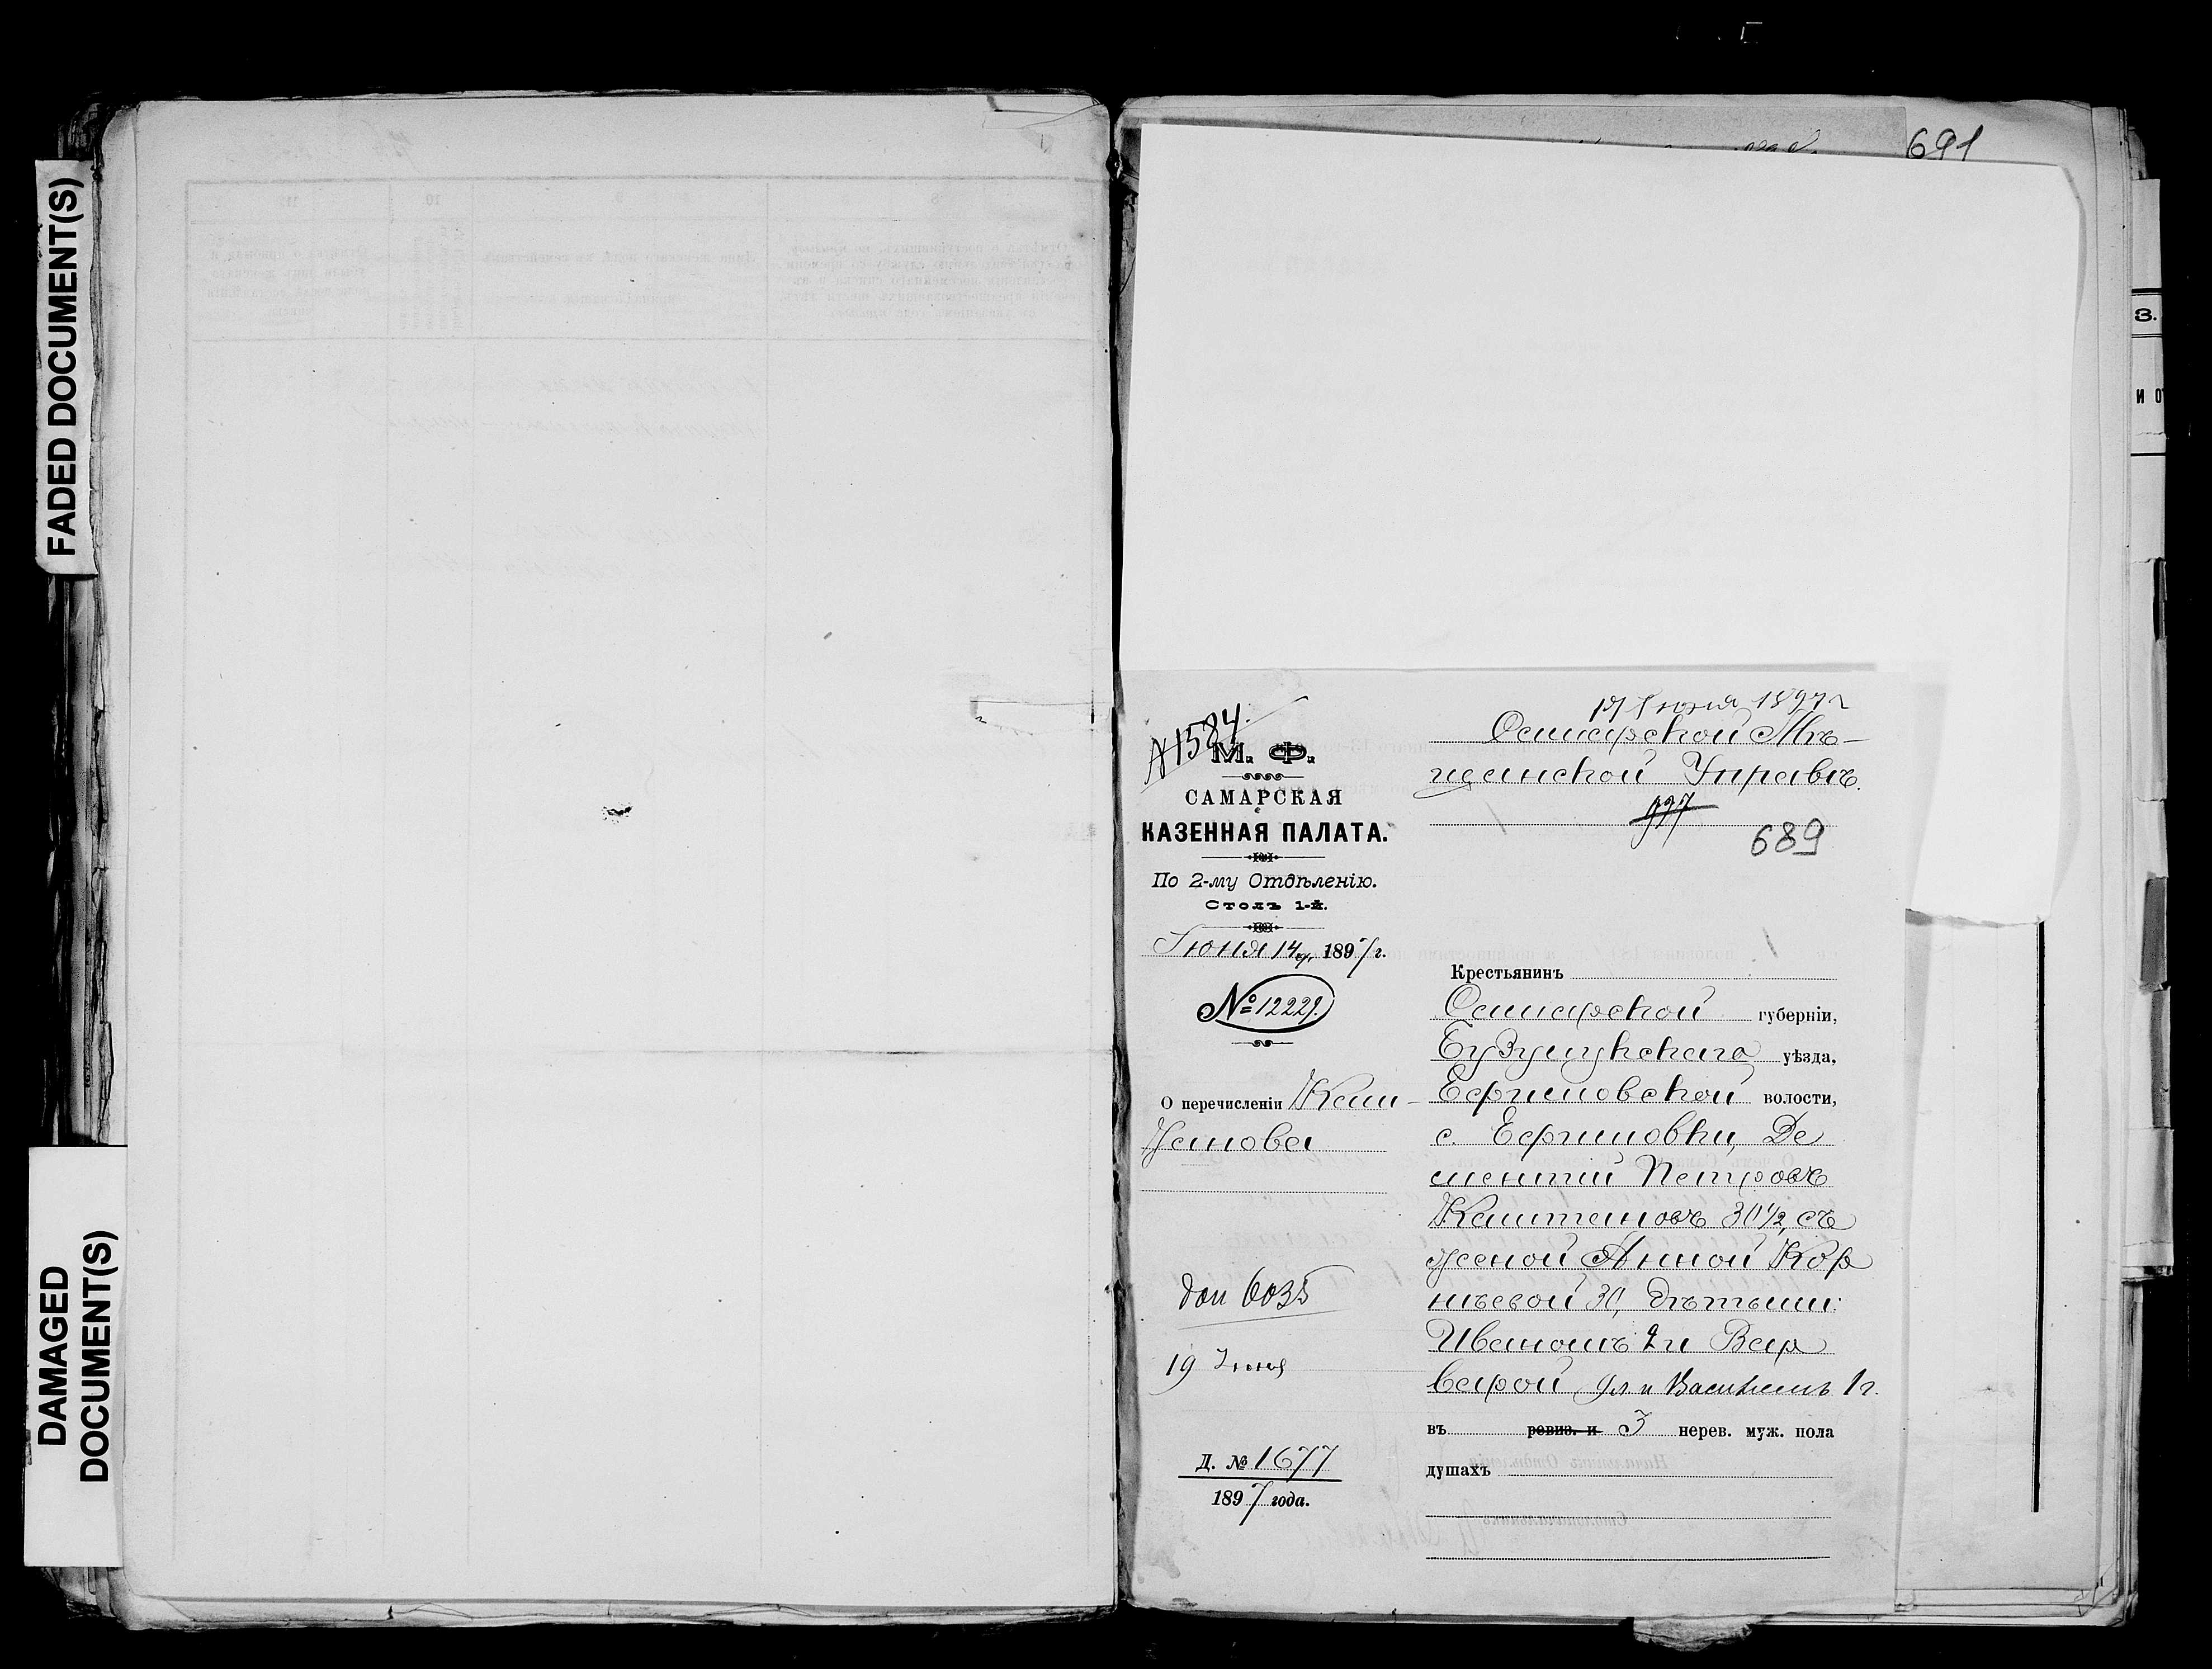 FADED DOCUMENT(S)
DAMAGED
DOCUMENT(S)
691
№1584.
М. Ф.
САМАРСКАЯ
КАЗЕННАЯ ПАЛАТА.
По 2-му Отдѣленію.
Столъ 1-й.
Іюня 14 дн. 1897 г.
№ 12229.
О перечисленіи Каш-
танова
доп 6035
19 Іюня
Д. № 1677
1897 года.
Іюня 1897 г
Самарской Мѣ-
щанской Управѣ.
689
Крестьянинъ
Самарской губерніи,
Бузулукскаго уѣзда,
Ефимовской волости,
с. Ефимовки, Де
ментій Петровъ
Каштановъ 30½, съ
женой Анной Кор
нѣевой 30, дѣтьми:
Иваномъ 2 и Вар
варой и Василіемъ 1 г.
въ ревиз. и 3 нерев. муж. пола
душахъ
3.
И ОТ